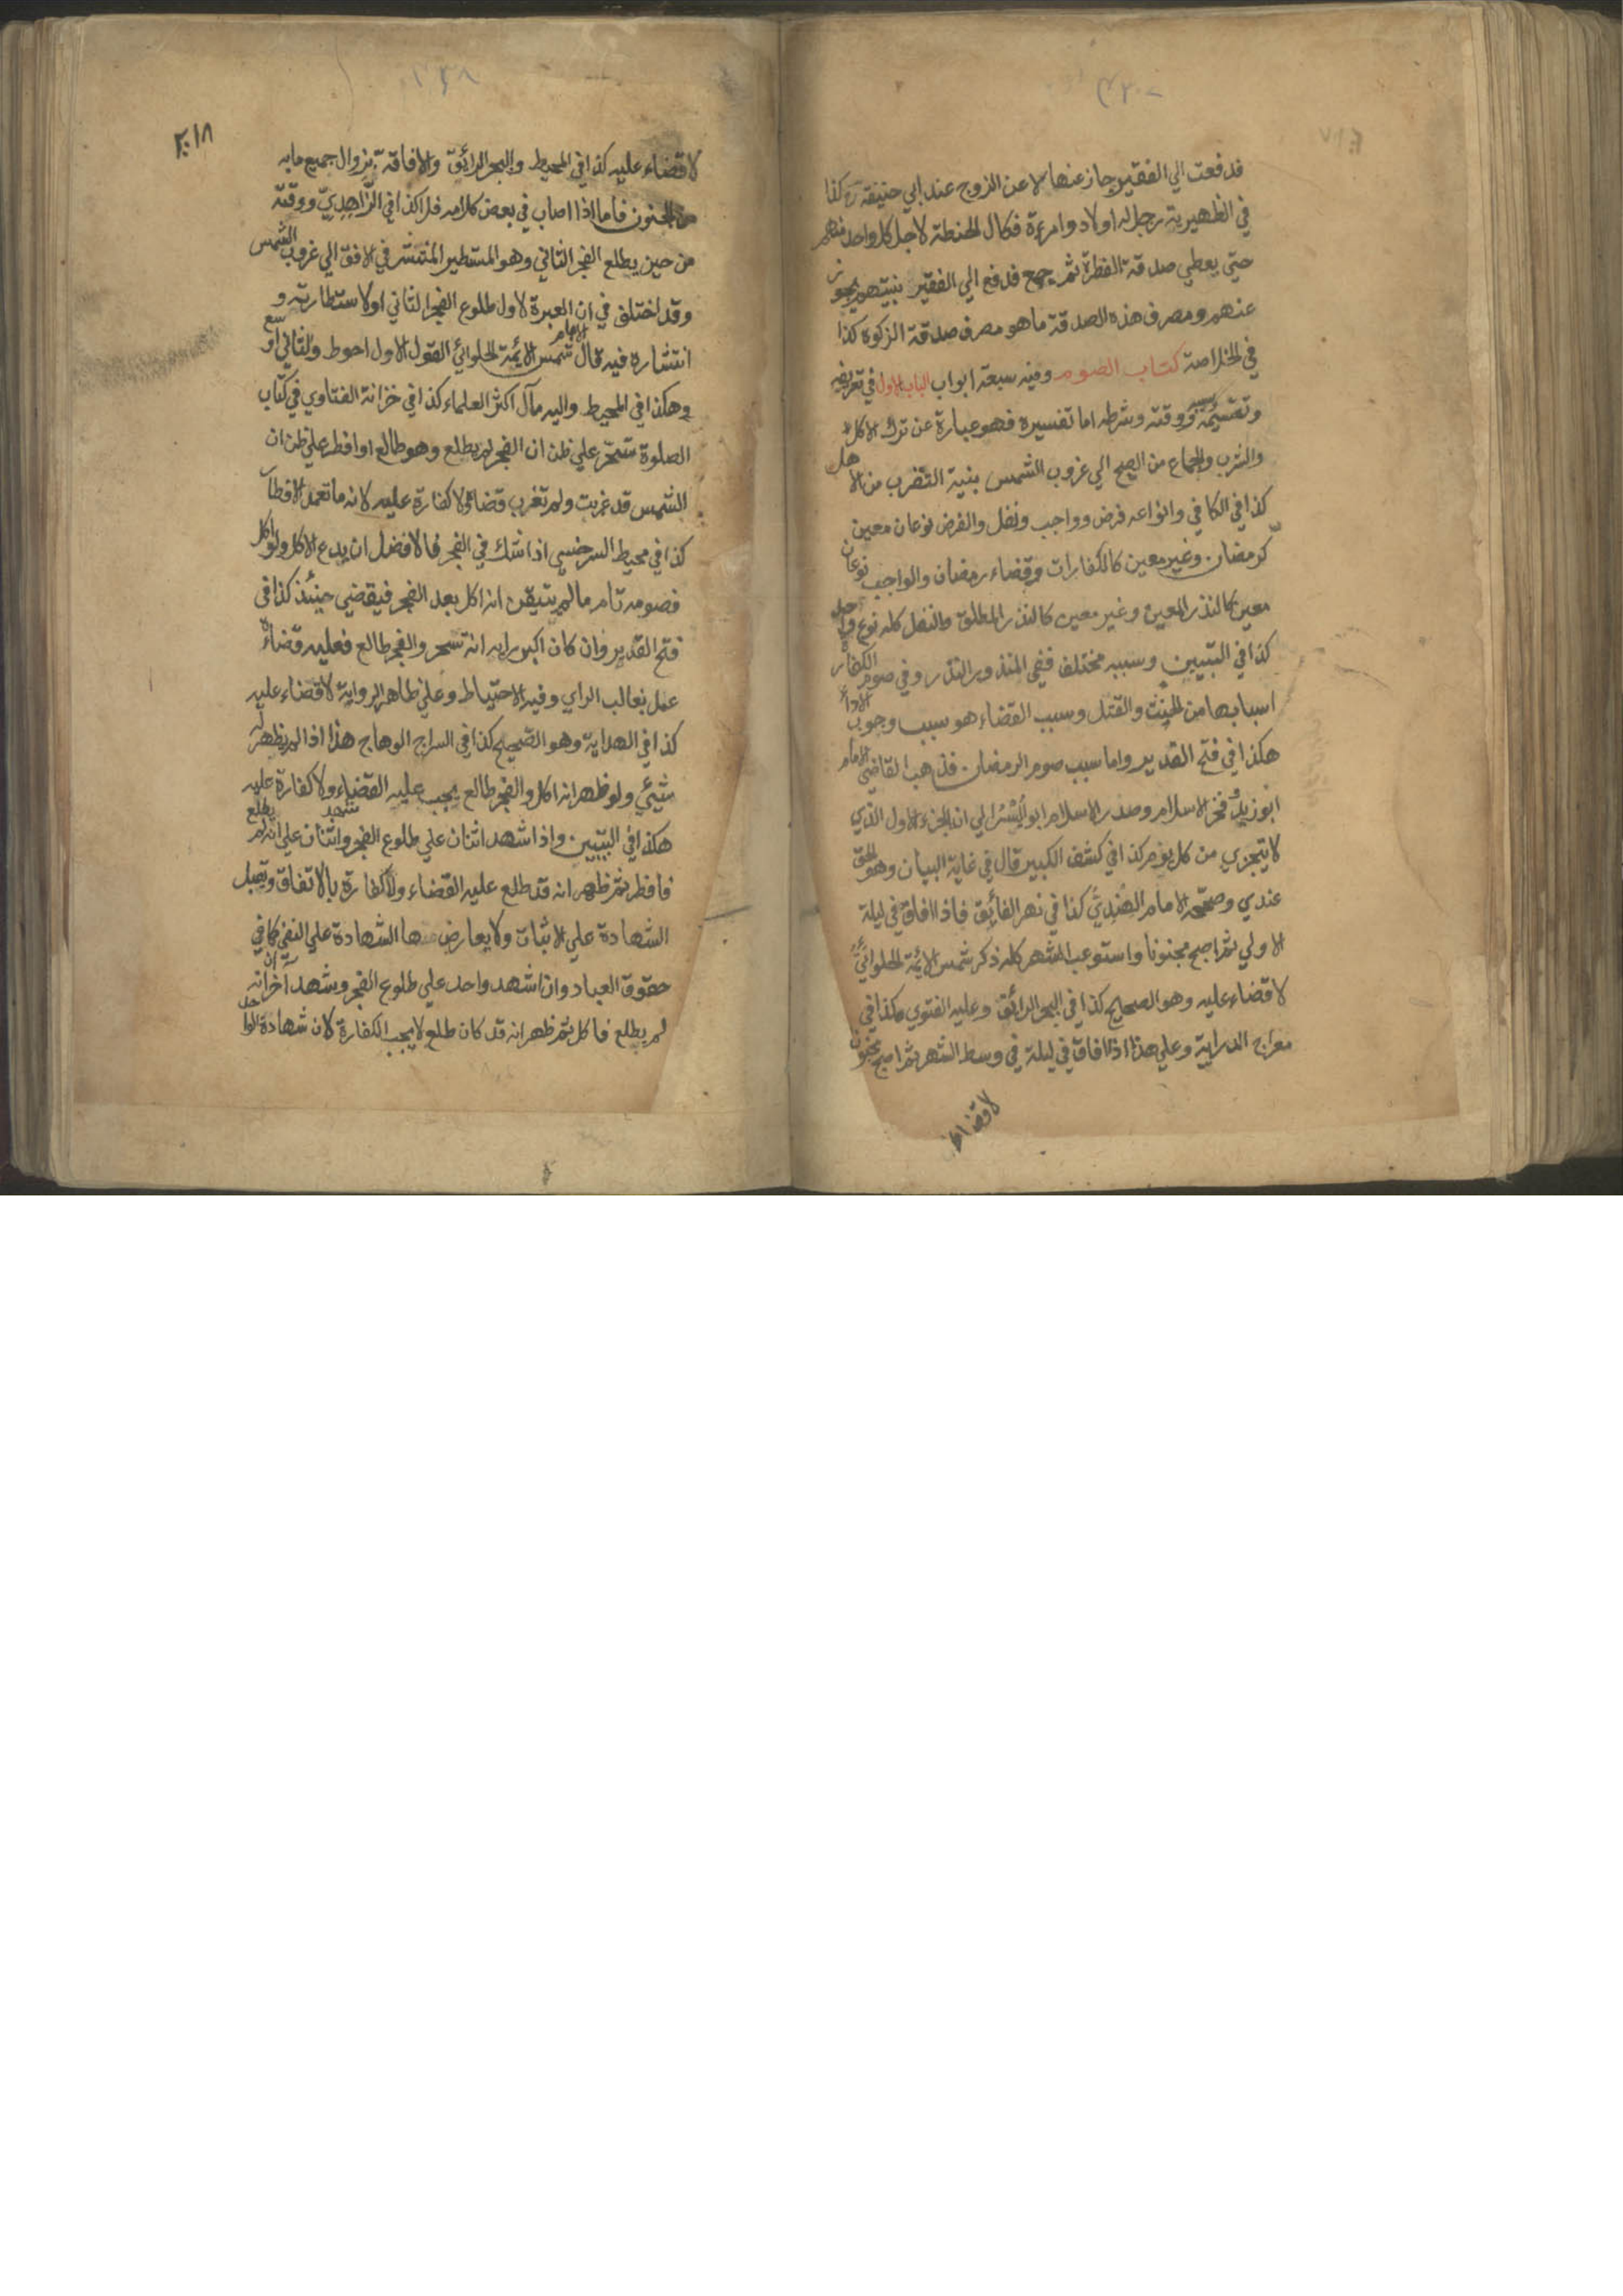 فدفعت الي الفقير جاز عنها لا عن الزوج عند ابي حنيفة رح كذا
في الظهيرية رجل له اولاد وامرءة فكال الحنطة لاجل كل واحد منهم
حتي يعطي صدقة الفطرة ثم جمع فدفع الي الفقير بنيتهم يجوز
عنهم ومصرف هذه الصدقة ما هو مصرف صدقة الزكوة كذا
في الخلاصة كتاب الصوم وفيه سبعة ابواب الباب الاول في تعريفه
وتقسيمه وسببه ووقته وشرطه اما تفسيره فهو عبارة عن ترك الاكل
والشرب والجماع من الصبح الي غروب الشمس بنية التقرب من الاهل
كذا في الكافي وانواعه فرض وواجب ونفل والفرض نوعان معين
كرمضان وغير معين كالكفارات وقضاء رمضان والواجب نوعان
معين كالنذر المعين وغير معين كالنذر المطلق والنفل كله نوع واحد
كذا في التبيين وسببه مختلف ففي المنذور النذر وفي صوم الكفارة
اسبابها من الحنث والقتل وسبب القضاء هو سبب وجوب الاداء
هكذا في فتح القدير واما سبب صوم الرمضان فذهب القاضي الامام
ابو زيد فخر الاسلام وصدر الاسلام ابو اليسر الي انه الجزء الاول الذي
لا يتجزي من كل يوم كذا في كشف الكبير قال في غاية البيان وهو الحق
عندي وصححه الامام الهندي كذا في نهر الفائق فاذا افاق في ليلة
الاولي ثم اصبح مجنونا واستوعب الشهر كله ذكر شمس الائمة الحلوائي
لا قضاء عليه وهو الصحيح كذا في البحر الرائق وعليه الفتوي هكذا في
معراج الدراية وعلي هذا اذا افاق في ليلة في وسط الشهر ثم اصبح مجنون
لا قضاء
لا قضاء عليه كذا في المحيط والبحر الرائق والافاقة بزوال جميع ما به
من الجنون فاما اذا اصاب في بعض كلامه فلا كذا في الزاهدي ووقته
من حين يطلع الفجر الثاني وهو المستطير المنتشر في الافق الي غروب الشمس
وقد اختلف في ان العبرة لاول طلوع الفجر الثاني او لاستطارته و
انتشاره فيه قال الامام شمس الائمة الحلوائي القول الاول احوط والثاني اوسع
وهكذا في المحيط واليه مال اكثر العلماء كذا في خزانة الفتاوي في كتاب
الصلوة تسحر علي ظن ان الفجر لم يطلع وهو طالع او افطر علي ظن ان
الشمس قد غربت ولم تغرب قضاه ولا كفارة عليه لانه ما تعمد الافطار
كذا في محيط السرخسي اذا شك في الفجر فالافضل ان يدع الاكل ولو اكل
فصومه تام ما لم يتيقن انه اكل بعد الفجر فيقضي حينئذ كذا في
فتح القدير وان كان اكبر رايه انه تسحر والفجر طالع فعليه قضاءه
عمل بغالب الراي وفيه الاحتياط وعلي ظاهر الرواية لا قضاء عليه
كذا في الهداية وهو الصحيح كذا في السراج الوهاج هذا اذا لم يظهر له
شيئ ولو ظهر انه اكل والفجر طالع يجب عليه القضاء ولا كفارة عليه
هكذا في التبيين واذا شهد اثنان علي طلوع الفجر واثنان شهد علي انه لم يطلع
فافطر ثم ظهر انه قد طلع عليه القضاء ولا كفارة بالاتفاق وتقبل
الشهادة علي الاثبات ولا يعارضها الشهادة علي النفي كما في
حقوق العباد وان شهد واحد علي طلوع الفجر وشهد آخر انه
لم يطلع فاكل ثم ظهر انه قد كان طلع لا يجب الكفارة لان شهادة الواحد